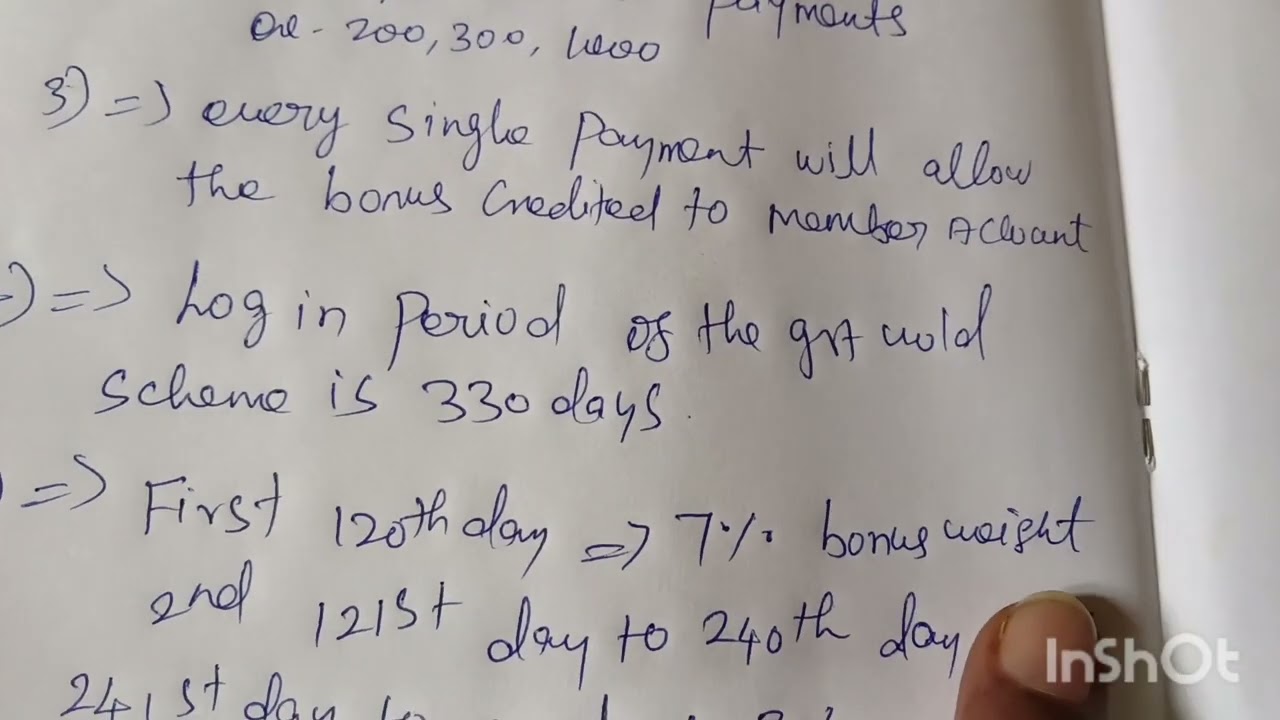 payments
200, 300, 1000
3) => every Single Payment will allow
the bonus Credited to Member Account
=> Log in Period of the grt
Scheme is 330 days.
=> First 120th day => 7% bonus weight
2nd 121st day to 240th day
241st day to
InShOt